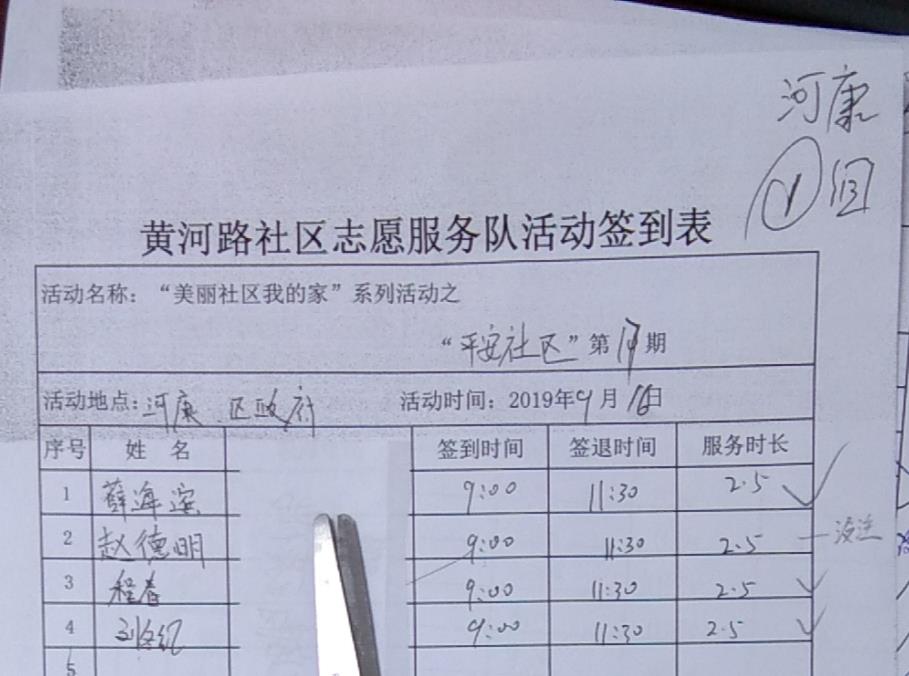 河康
① 组
黄河路社区志愿服务队活动签到表
活动名称：“美丽社区我的家”系列活动之
“平安社区”第17期
活动地点：河康 区政府 活动时间：2019年9月16日
序号 姓 名 签到时间 签退时间 服务时长
1 薛海滨 9:00 11:30 2.5 ✓
2 赵德明 9:00 11:30 2.5 —没注
3 程春 9:00 11:30 2.5 ✓
4 9:00 11:30 2.5 ✓
5